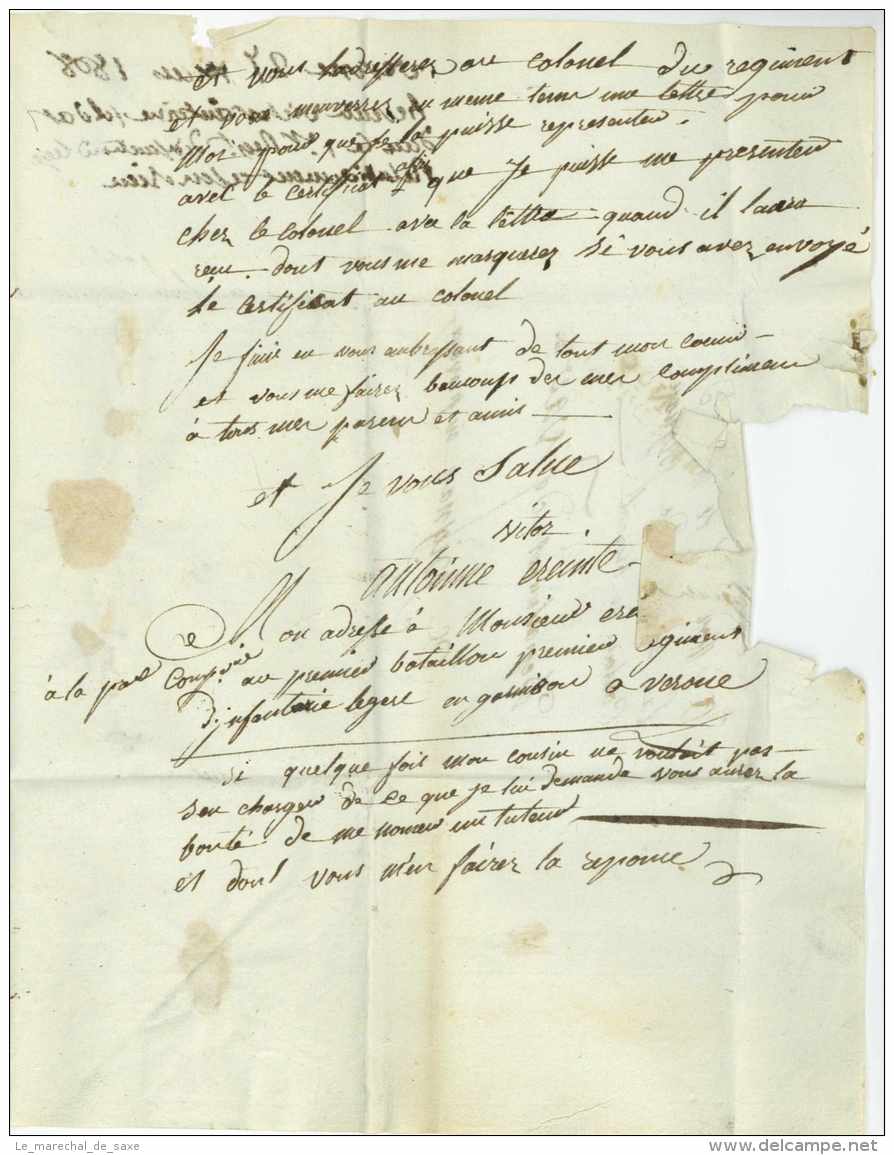 et vous ladresserez au colonel du regiment
et vous menverrez en meme tems une lettre pour
Moi pour que je la puisse representer
avec le certificat afin que Je puisse me presenter
chez le colonel avec la lettre quand il laura
recu. dont vous me marquerez si vous avez envoyé
le certificat au colonel
Je finis en vous anbrassant de tout mon coeur
et vous me fairez baucoups des mes complimens
à tous mes parens et amis
et Je vous Salue
antoinne ereinte
Mon adresse à Monsieur ere
à la pre Compnie au premier bataillon premier regiment
d'infanterie legere en garnison a verone
si quelque fois mon cousin ne vouloit pas
sen charger de ce que je lui demande vous aurez la
bonté de me nomer un tuteur
et dont vous m'en fairez la reponce
Le_marechal_de_saxe
www.delcampe.net